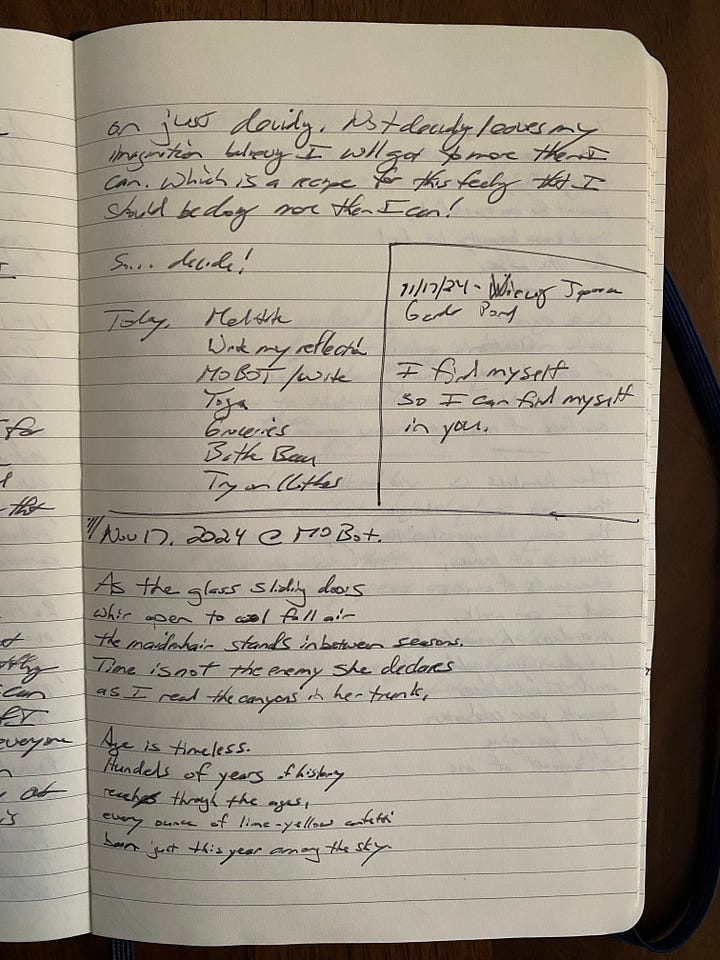 on just deciding. Not deciding leaves my
imagination believing I will get to more than I
can. Which is a recipe for this feeling that I
should be doing more than I can!
So... decide!
Today, Meditate
Write my reflection
MOBOT / write
Yoga
Groceries
Bathe Bean
Try on clothes
11/17/24 - Viewing Japanese
Garden Pond
I find myself
so I can find myself
in you.
Nov 17, 2024 @ MOBot.
As the glass sliding doors
whir open to cool fall air
the maidenhair stands in between seasons.
Time is not the enemy she declares
as I read the canyons in her trunk,
Age is timeless.
Hundreds of years of history
reaches through the ages,
every ounce of lime-yellow confetti
born just this year among the sky.
for
that
can
everyone